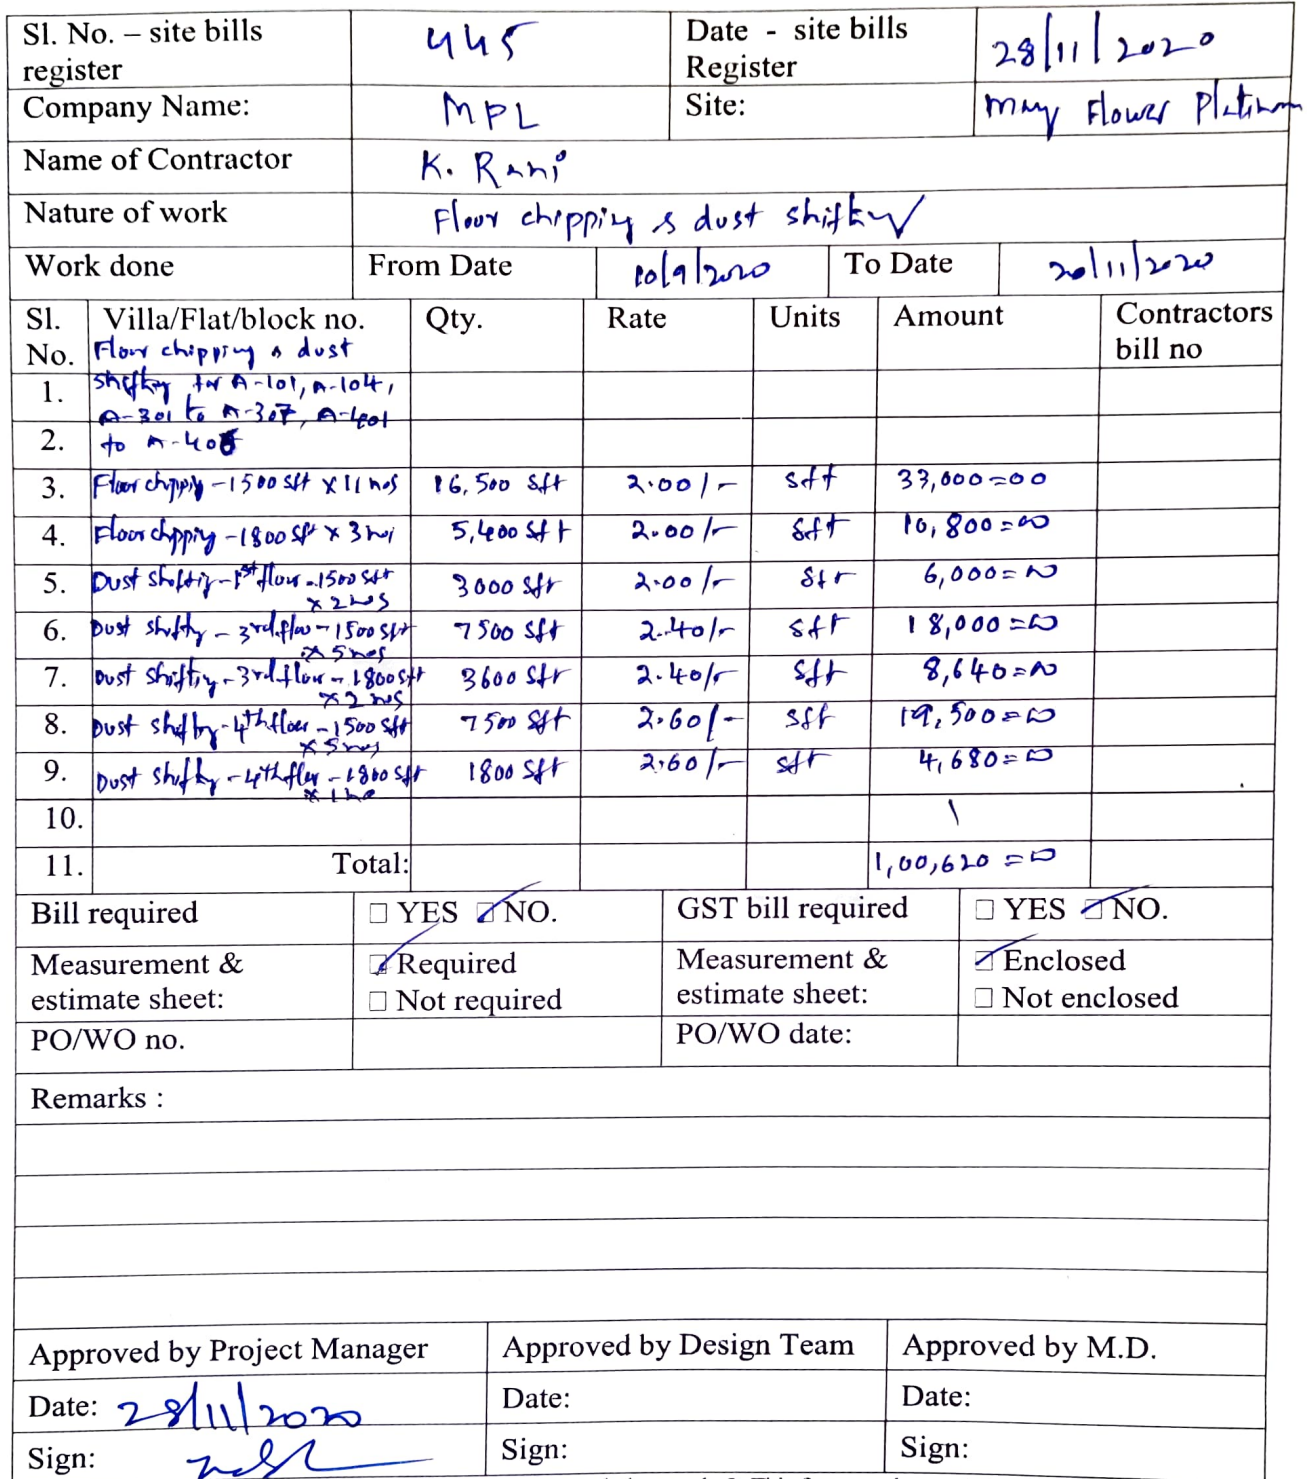 Sl. No. – site bills register 445 Date - site bills Register 28/11/2020
Company Name: MPL Site: May Flower Platinum
Name of Contractor K. Rani
Nature of work Floor chipping & dust shifting
Work done From Date 10/9/2020 To Date 20/11/2020
Sl. No. Villa/Flat/block no. Qty. Rate Units Amount Contractors bill no
Floor chipping & dust
1. shifting for A-101, A-104,
A-301 to A-307, A-401
2. to A-406
3. Floor chipping - 1500 sft x 11 nos 16,500 sft 2.00/- sft 33,000=00
4. Floor chipping - 1800 sft x 3 nos 5,400 sft 2.00/- sft 10,800=00
5. Dust shifting - 1st floor - 1500 sft x 2 nos 3000 sft 2.00/- sft 6,000=00
6. Dust shifting - 3rd floor - 1500 sft x 5 nos 7500 sft 2.40/- sft 18,000=00
7. Dust shifting - 3rd floor - 1800 sft x 2 nos 3600 sft 2.40/- sft 8,640=00
8. Dust shifting - 4th floor - 1500 sft x 5 nos 7500 sft 2.60/- sft 19,500=00
9. Dust shifting - 4th floor - 1800 sft x 1 no 1800 sft 2.60/- sft 4,680=00
10.
11. Total: 1,00,620=00
Bill required ☐ YES ☑ NO. GST bill required ☐ YES ☑ NO.
Measurement & estimate sheet: ☑ Required ☐ Not required Measurement & estimate sheet: ☑ Enclosed ☐ Not enclosed
PO/WO no. PO/WO date:
Remarks :
Approved by Project Manager Approved by Design Team Approved by M.D.
Date: 28/11/2020 Date: Date:
Sign: Sign: Sign: